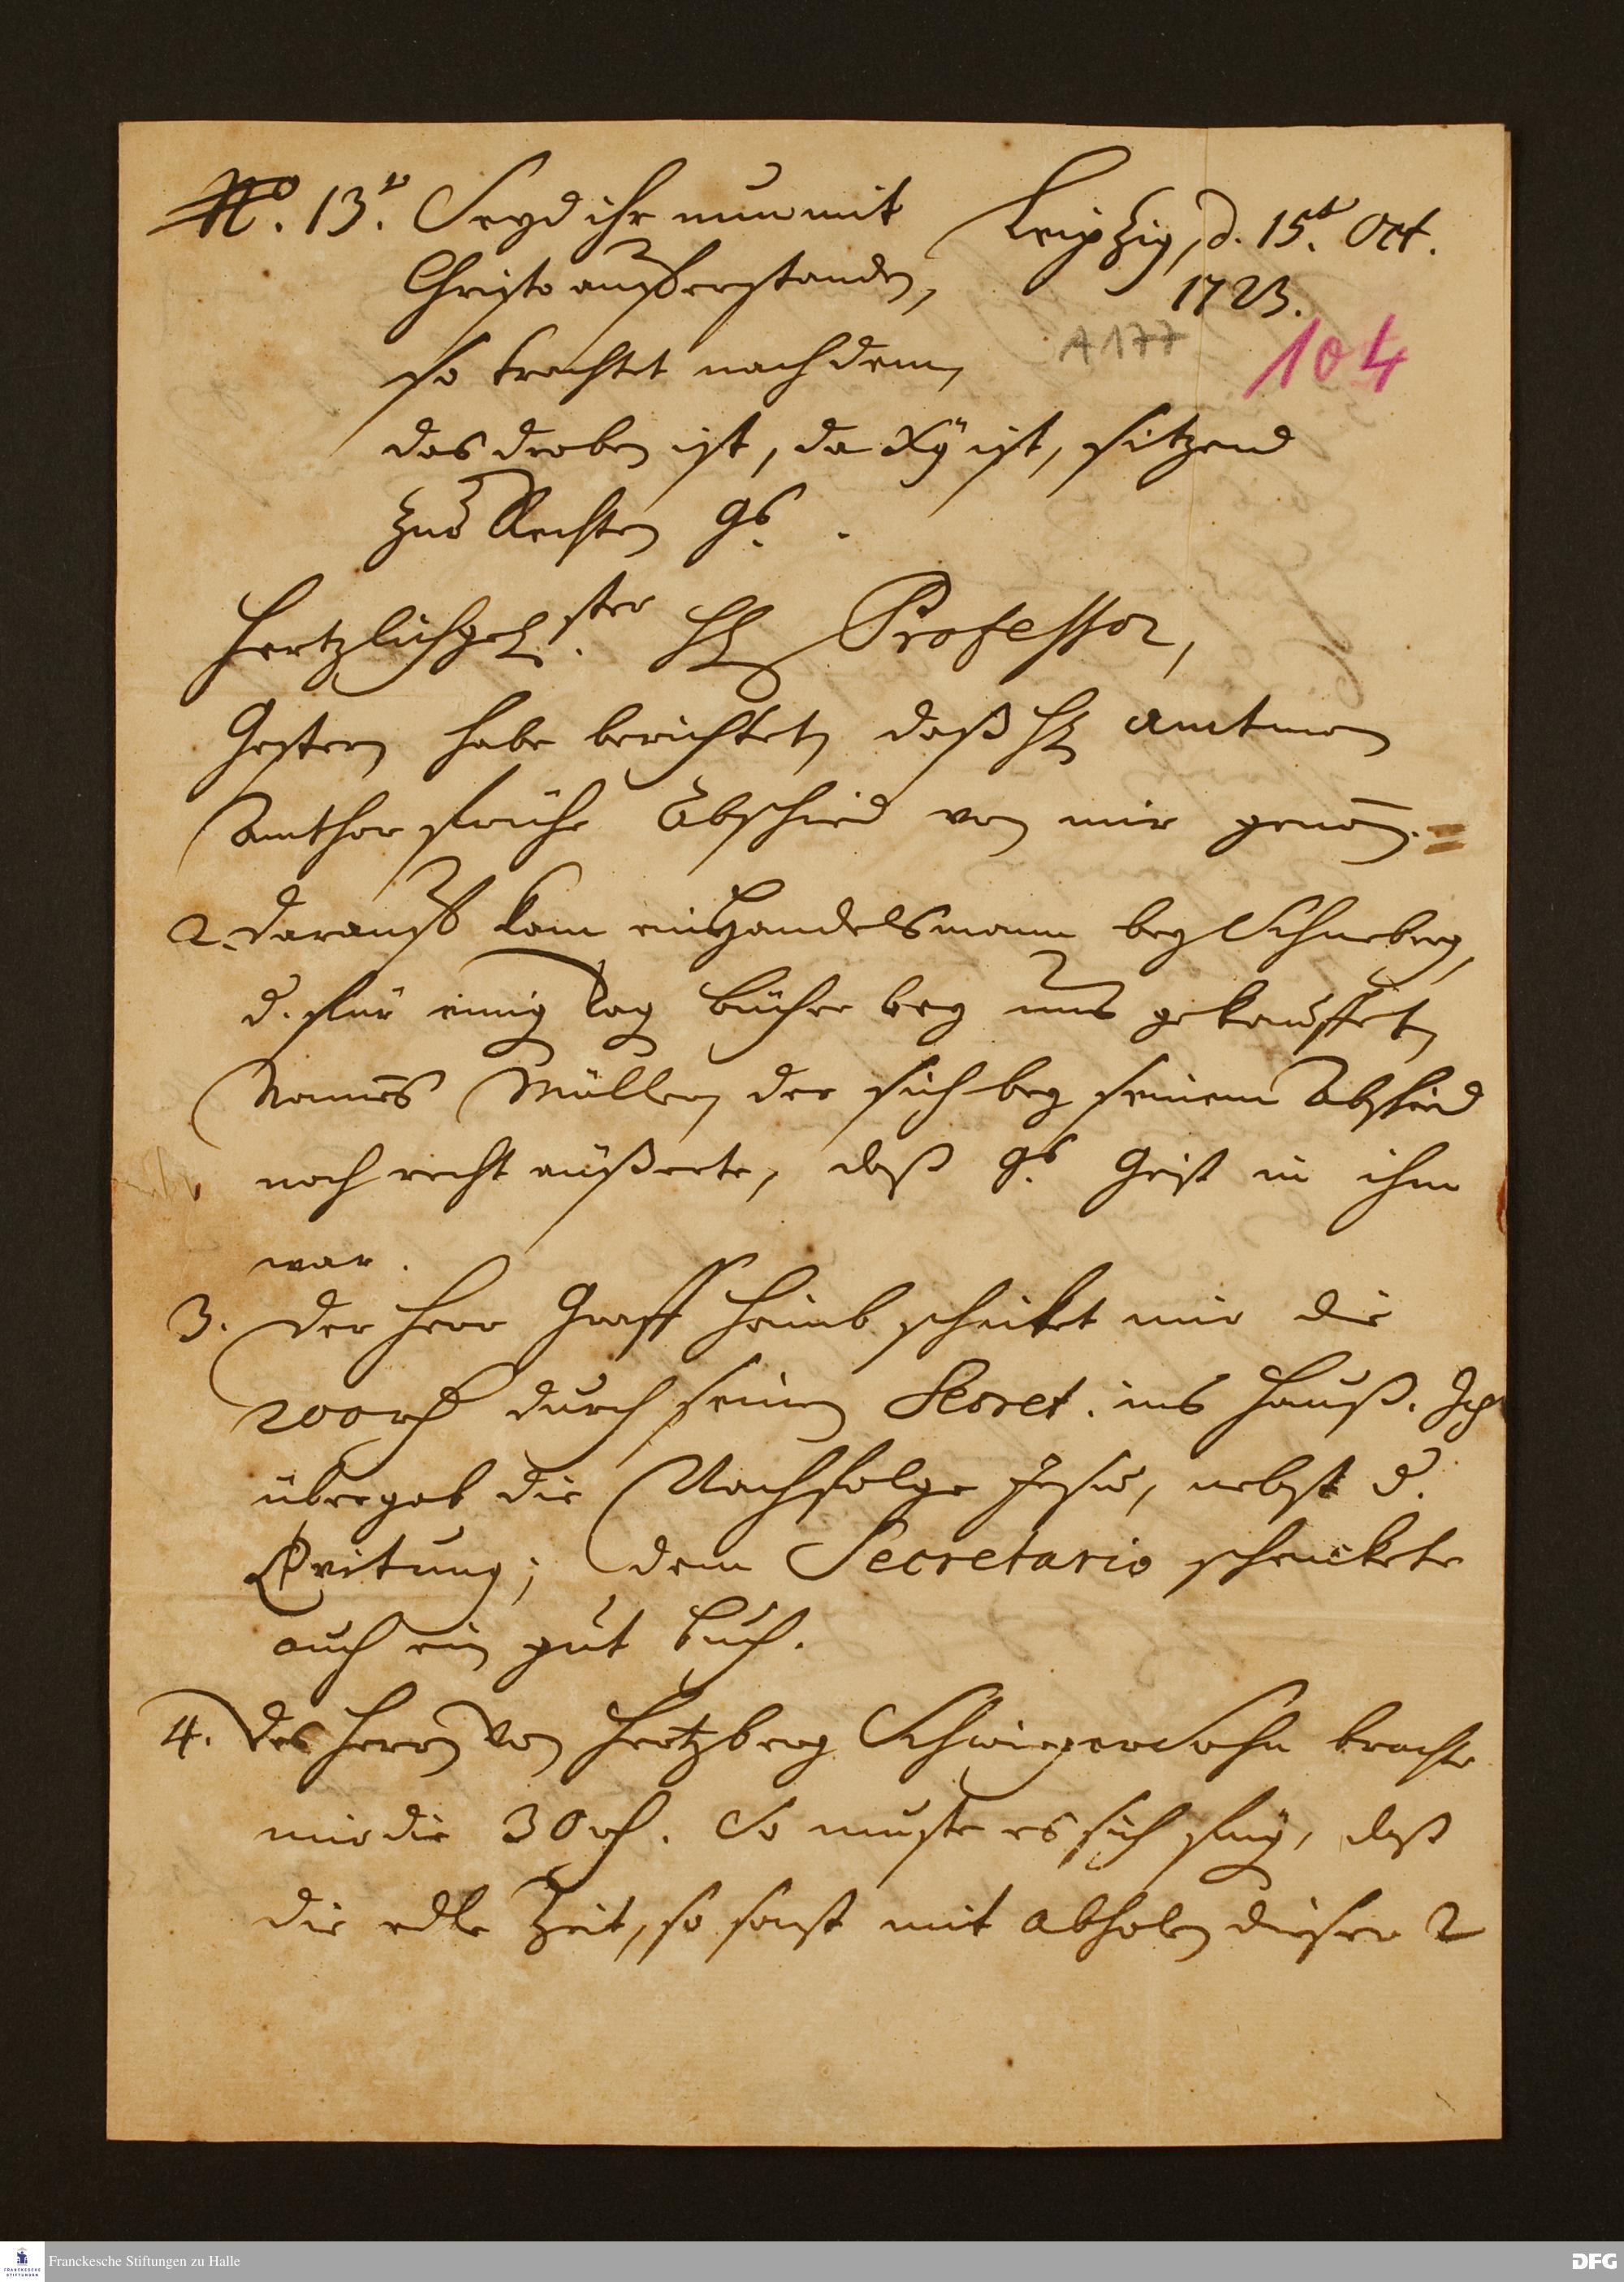 No. 13. Seyd ihr nun mit
Leipzig, d. 15t. Oct.
1723.
Christo aufferstanden,
so trachtet nach dem,
A 177
104
das droben ist, da Xg ist, sitzend
zur Rechten Gs.
Hertzlichgel. ster H Professor,
Gestern habe berichtet, daß H Amtman
Amthor frühe Abschied von mir genom.
2. darauff kam ein Handelsmann bey Schneeberg,
d. für einig Tag bücher bey uns gekauffet,
Namens Müller, der sich bey seinem Abschied
noch recht äußerte, daß Gs. Geist in ihm
war.
3. Der Herr Graff schickt mir die
200 rh durch seinen Secret. ins Hauß. Ich
übergab die Nachfolge Jesu, nebst d.
Leitung; dem Secretario schenckete
auch ein gut buch.
4. Des Herrn von Hertzberg SchwiegerSohn brachte
mir die 30 rh. So muste es sich füg, daß
die edle Zeit, so sonst mit abholen dieser 2
Franckesche Stiftungen zu Halle
FRANCKESCHE STIFTUNGEN
DFG